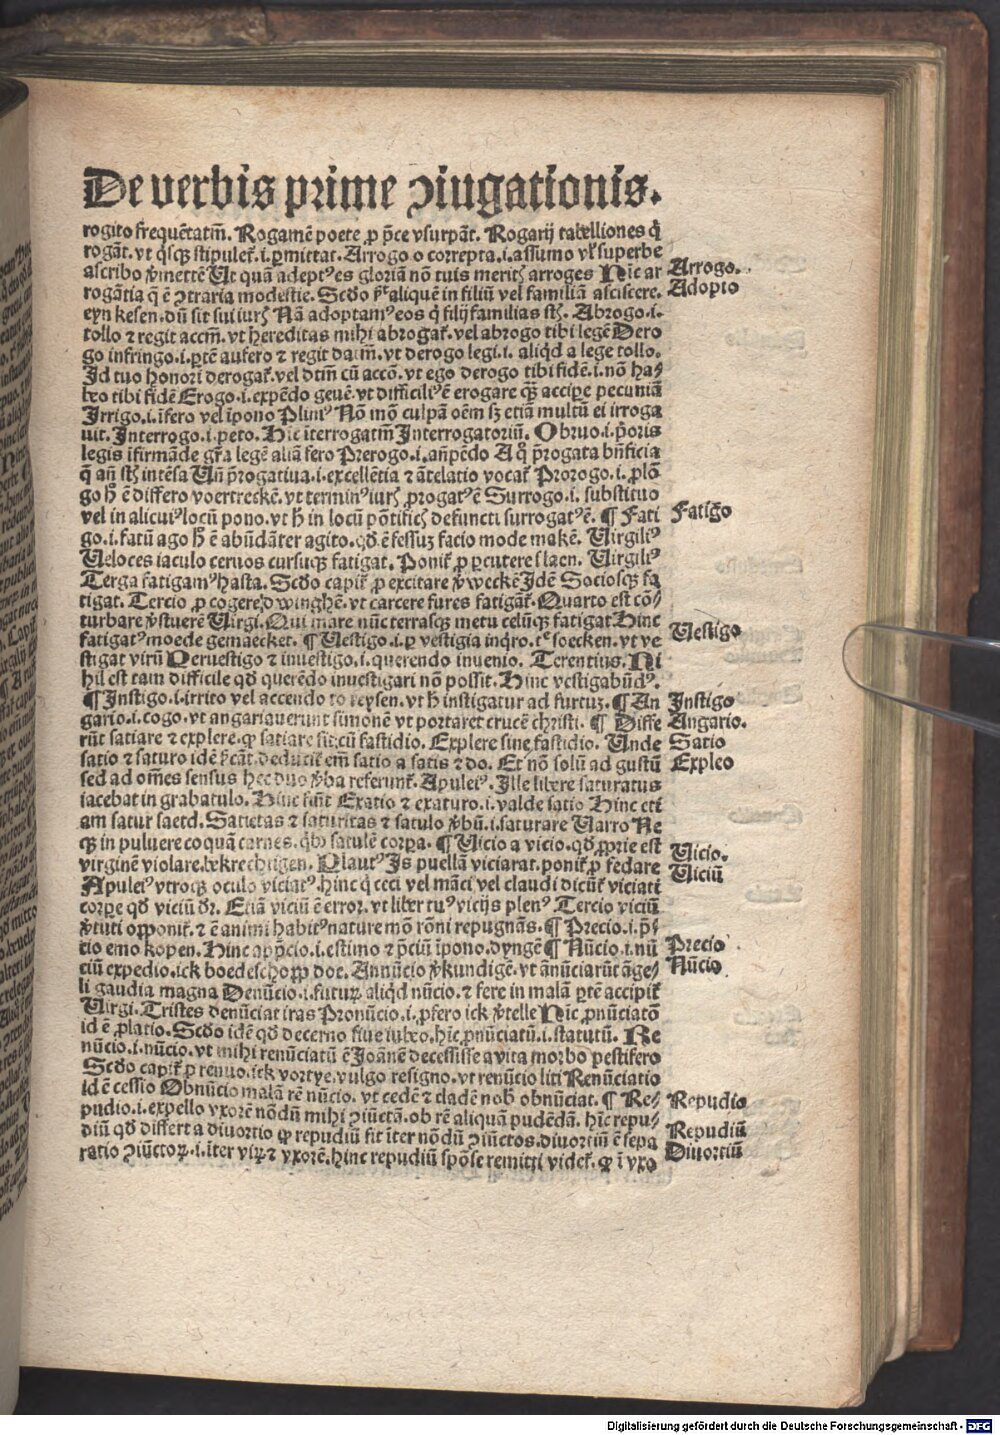 De verbis prime ꝯiugationis.
rogito frequẽtatiũ. Rogamẽ poete ꝓ p̃ce vsurpãt. Rogarij tabelliones q̃
rogãt. vt q̃sqꝫ stipulet᷑. i. ꝑmittat. Arrogo o correpta. i. assumo vl᷑ superbe
ascribo v̾mettẽ Ut quã adeptꝰes gloriã nõ tuis meritꝭ arroges Hic ar
Arrogo.
rogãtia q̃ ẽ ꝯtraria modestie. Scd̃o p̃t aliquẽ in filiũ vel familiã asciscere.
Adopto
eyn kesen. dũ sit sui iurꝭ Nã adoptamꝰeos q̃ filij familias st̃ꝭ. Abrogo. i.
tollo ⁊ regit accm̃. vt hereditas mihi abrogat᷑. vel abrogo tibi legẽ Dero
go infringo. i. ꝑtẽ aufero ⁊ regit datm̃. vt derogo legi. i. aliq̃d a lege tollo.
Id tuo honori derogat᷑. vel dtm̃ cũ accõ. vt ego derogo tibi fidẽ. i. nõ ha⸗
beo tibi fidẽ Erogo. i. expẽdo geuẽ. vt difficiliꝰẽ erogare qꝫ̃ accipe pecuniã
Irrigo. i. ĩfero vel ĩpono Pliniꝰ Nõ mõ culpã oẽm sꝫ etiã multũ ei irroga
uit. Interrogo. i. peto. Hic ĩterrogatm̃ Interrogatoriũ. Obruo. i. p̃oris
legis ĩfirmãde gr̃a legẽ aliã fero Prerogo. i. añpẽdo A q̃ p̃rogata bñficia
q̃ añ st̃ꝭ intẽsa Uñ p̃rogatiua. i. excellẽtia ⁊ ãtelatio vocat᷑ Prorogo. i. ꝓlõ
go h̾ ẽ differo voertreckẽ. vt terminꝰiurꝭ ꝓrogatꝰẽ Surrogo. i. substituo
vel in alicuiꝰlocũ pono. vt h̃ in locũ põtificꝭ defuncti surrogatꝰẽ. ¶ Fati
Fatigo
go. i. fatũ ago h̃ ẽ abũdãter agito. qd̃ ẽ fessuꝫ facio mode makẽ. Uirgiliꝰ
Ueloces iaculo ceruos cursuqꝫ fatigat. Ponit᷑ ꝓ ꝑcutere slaen. Uirgiliꝰ
Terga fatigamꝰhasta. Scd̃o capit᷑ ꝓ excitare v̾weckẽ Idẽ Sociosqꝫ fa
tigat. Tercio ꝓ cogere winghẽ. vt carcere fures fatigãt᷑. Quarto est cõ⸗
turbare v̾stuerẽ Uirgi. Qui mare nũc terrasqꝫ metu celũqꝫ fatigat Hinc
fatigatꝰmoede gemaecket. ¶ Uestigo. i. ꝑ vestigia inq̃ro. soecken. vt ve
Uestigo
stigat virũ Peruestigo ⁊ inuestigo. i. querendo inuenio. Terentius. Ni
hil est tam difficile qd̃ querẽdo inuestigari nõ possit. Hinc vestigabũdꝰ.
¶ Instigo. i. irrito vel accendo to reysen. vt h̃ instigatur ad furtuꝫ. ¶ An
Instigo
gario. i. cogo. vt angariauerunt simonẽ vt portaret crucẽ christi. ¶ Diffe
Angario.
rũt satiare ⁊ explere. qꝫ satiare sit cũ fastidio. Explere sine fastidio. Unde
Satio
satio ⁊ saturo idẽ deducit᷑ em̃ satio a satis ⁊ do. Et nõ solũ ad gustũ
Expleo
sed ad om̃es sensus hec duo v̾ba referunt᷑. Apuleiꝰ. Ille libere saturatus
iacebat in grabatulo. Hinc Exatio ⁊ exaturo. i. valde satio Hinc eti
am satur saetd. Satietas ⁊ saturitas ⁊ satulo v̾bũ. i. saturare Uarro Ne
qꝫ in puluere coquã carnes. satulẽ corꝑa. ¶ Uicio a vicio. qd̃ ꝓprie est
Uicio.
virginẽ violare. Plautꝰ Is puellã viciarat. ponit᷑ ꝓ fedare
Uiciũ
Apuleiꝰ vtroqꝫ oculo viciatꝰ. hinc q̃ ceci vel mãci vel claudi dicũt᷑ viciati
corꝑe qd̃ viciũ dr̃. Etiã viciũ ẽ error. vt liber tuꝰvicijs plenꝰ Tercio viciũ
v̾tuti opponit᷑. ⁊ ẽ animi habitꝰnature mõ rõni repugnãs. ¶ Precio. i. p̃⸗
cio emo kopen. Hinc app̃cio. i. estimo ⁊ p̃ciũ ĩpono. dyngẽ ¶ Nũcio. i. nũ
Precio
ciũ expedio. ick boedeschopp doe. Annũcio v̾kundigẽ. vt ãnũciarũt ãge⸗
Nũcio
li gaudia magna Denũcio. i. futuꝝ aliq̃d nũcio. ⁊ fere in malã ꝑtẽ accipit᷑
Uirgi. Tristes denũciat iras Pronũcio. i. ꝓfero ick v̾telle Hic ꝓnũciatõ
id ẽ ꝓlatio. Scd̃o idẽ qd̃ decerno siue iubeo. hĩc ꝓnũciatũ. i. statutũ. Re
nũcio. i. nũcio. vt mihi renũciatũ ẽ Ioãnẽ decessisse a vita morbo pestifero
Scd̃o capit᷑ ꝓ renuo. ick vortye. vulgo resigno. vt renũcio liti Renũciatio
id ẽ cessio Obnũcio malã rẽ nũcio. vt cedẽ ⁊ cladẽ nob̃ obnũciat. ¶ Re⸗
Repudio
pudio. i. expello vxorẽ nõdũ mihi ꝯiũctã. ob rẽ aliquã pudẽdã. hĩc repu⸗
diũ qd̃ differt a diuortio qꝫ repudiũ fit ĩter nõdũ ꝯiũctos. diuortiũ ẽ sepa
Repudiũ
ratio ꝯiũctoꝝ. i. ĩter viꝝ ⁊ vxorẽ. hinc repudiũ spõse remitti videt᷑. qꝫ ĩ vxo
Diuortiũ
Digitalisierung gefördert durch die Deutsche Forschungsgemeinschaft - DFG